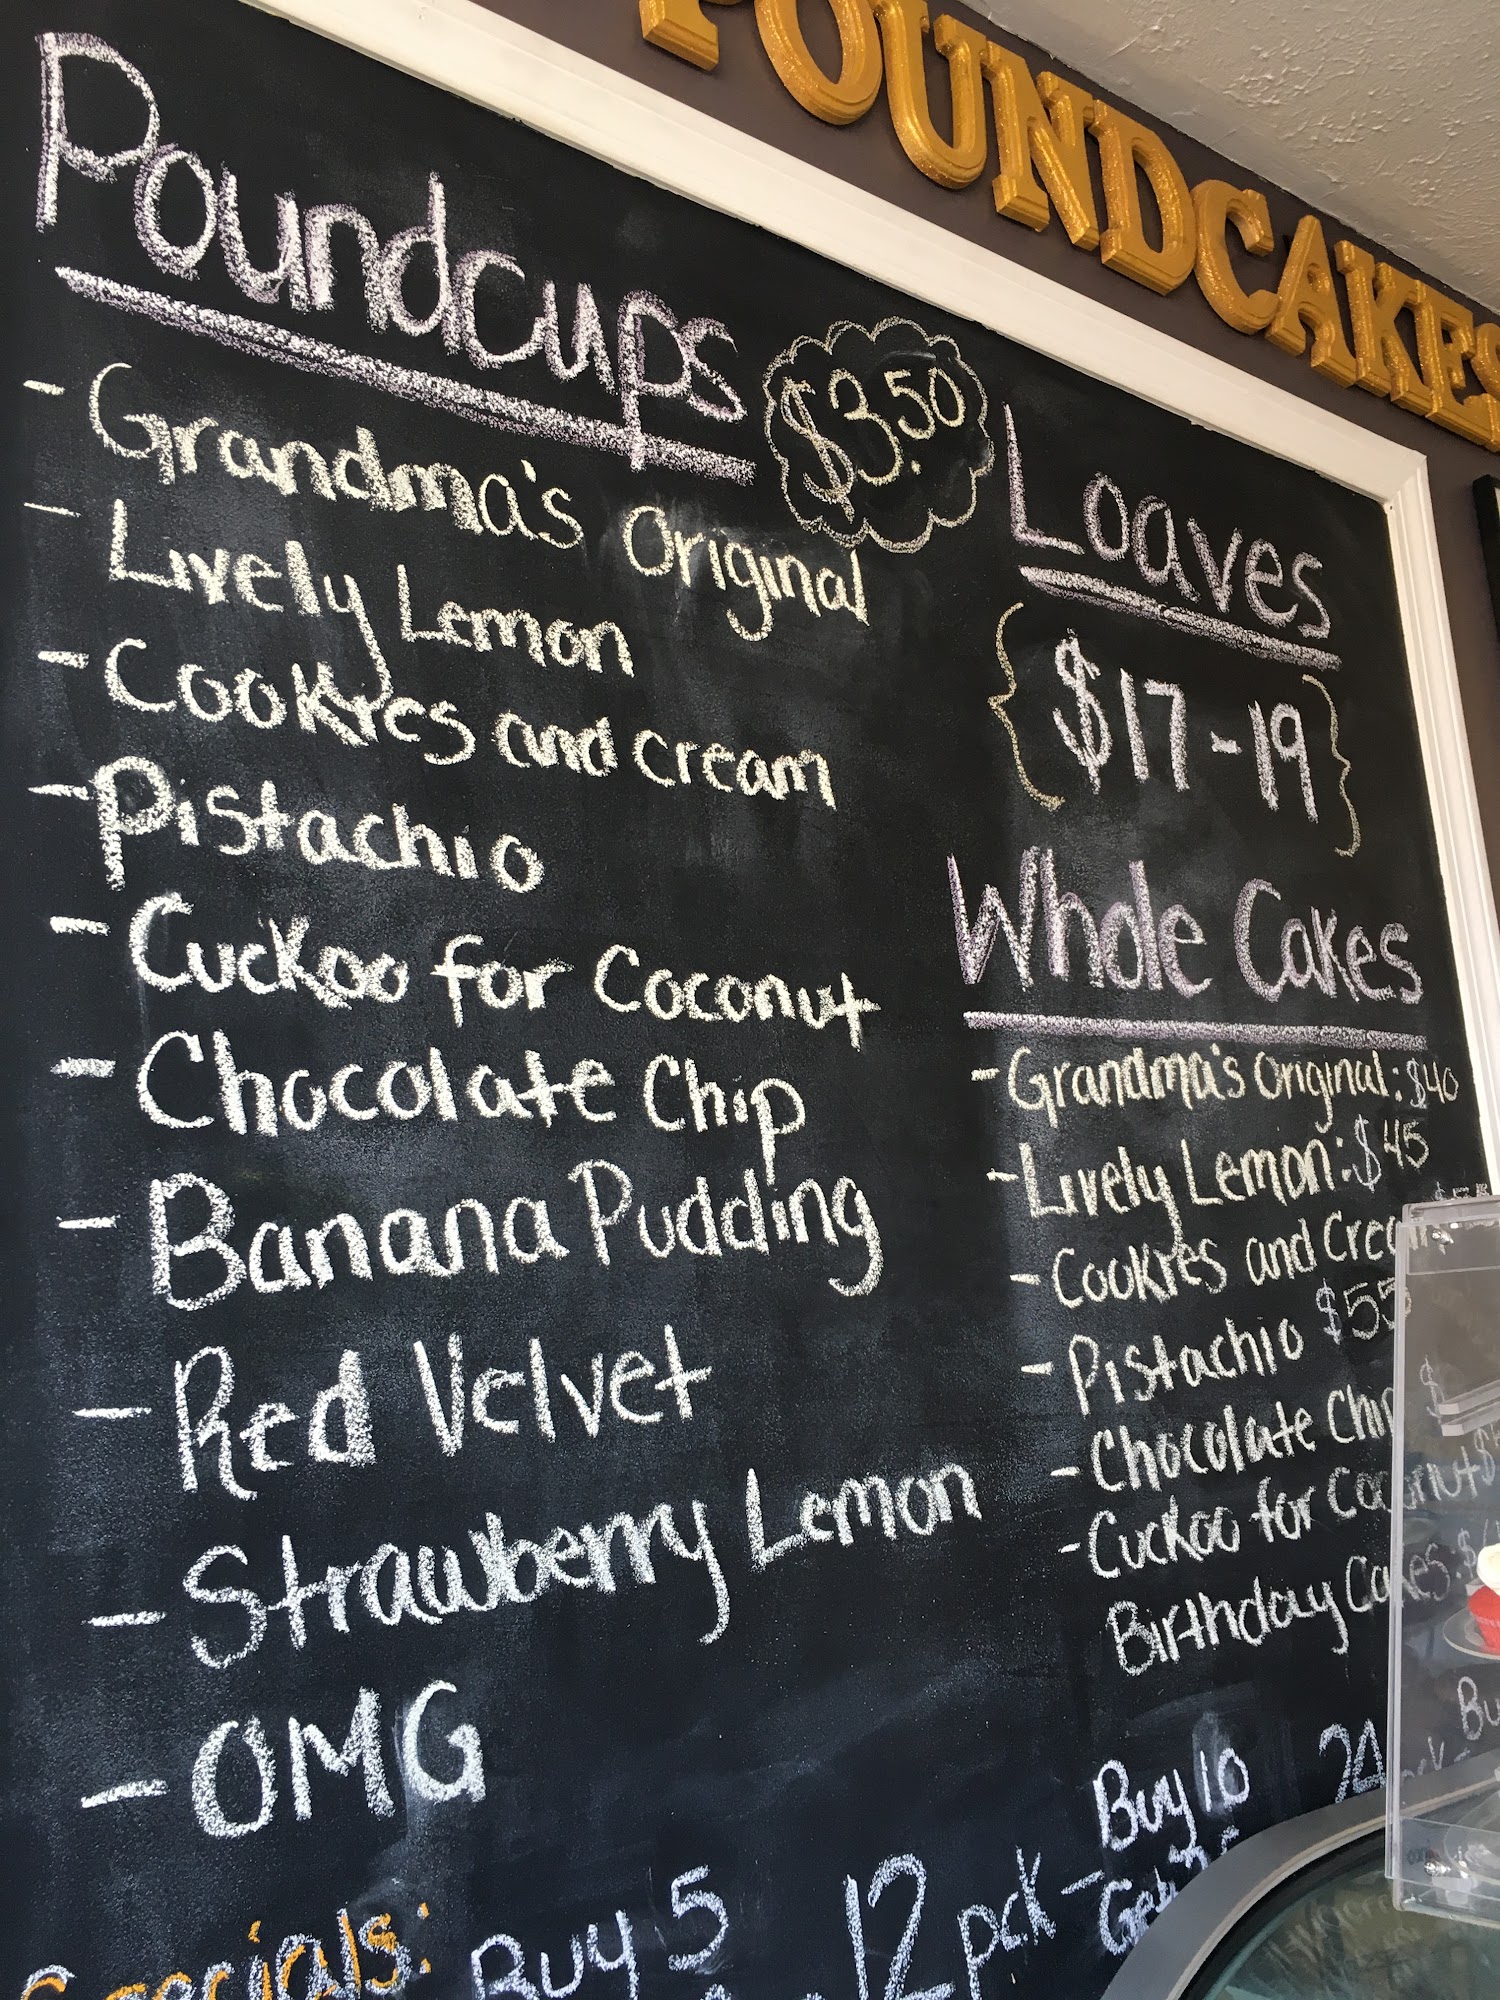 POUNDCAKES
Poundcups
$3.50
- Grandma's Original
- Lively Lemon
- Cookies and cream
- Pistachio
- Cuckoo for Coconut
- Chocolate Chip
- Banana Pudding
- Red Velvet
- Strawberry Lemon
- OMG
Loaves
{ $17-19 }
Whole Cakes
- Grandma's Original: $40
- Lively Lemon: $45
- Cookies and Cream
- Pistachio $55
- Chocolate Chip
- Cuckoo for Coconut
Birthday Cakes
Specials:
Buy 5
12 pck -
Buy 10
Get